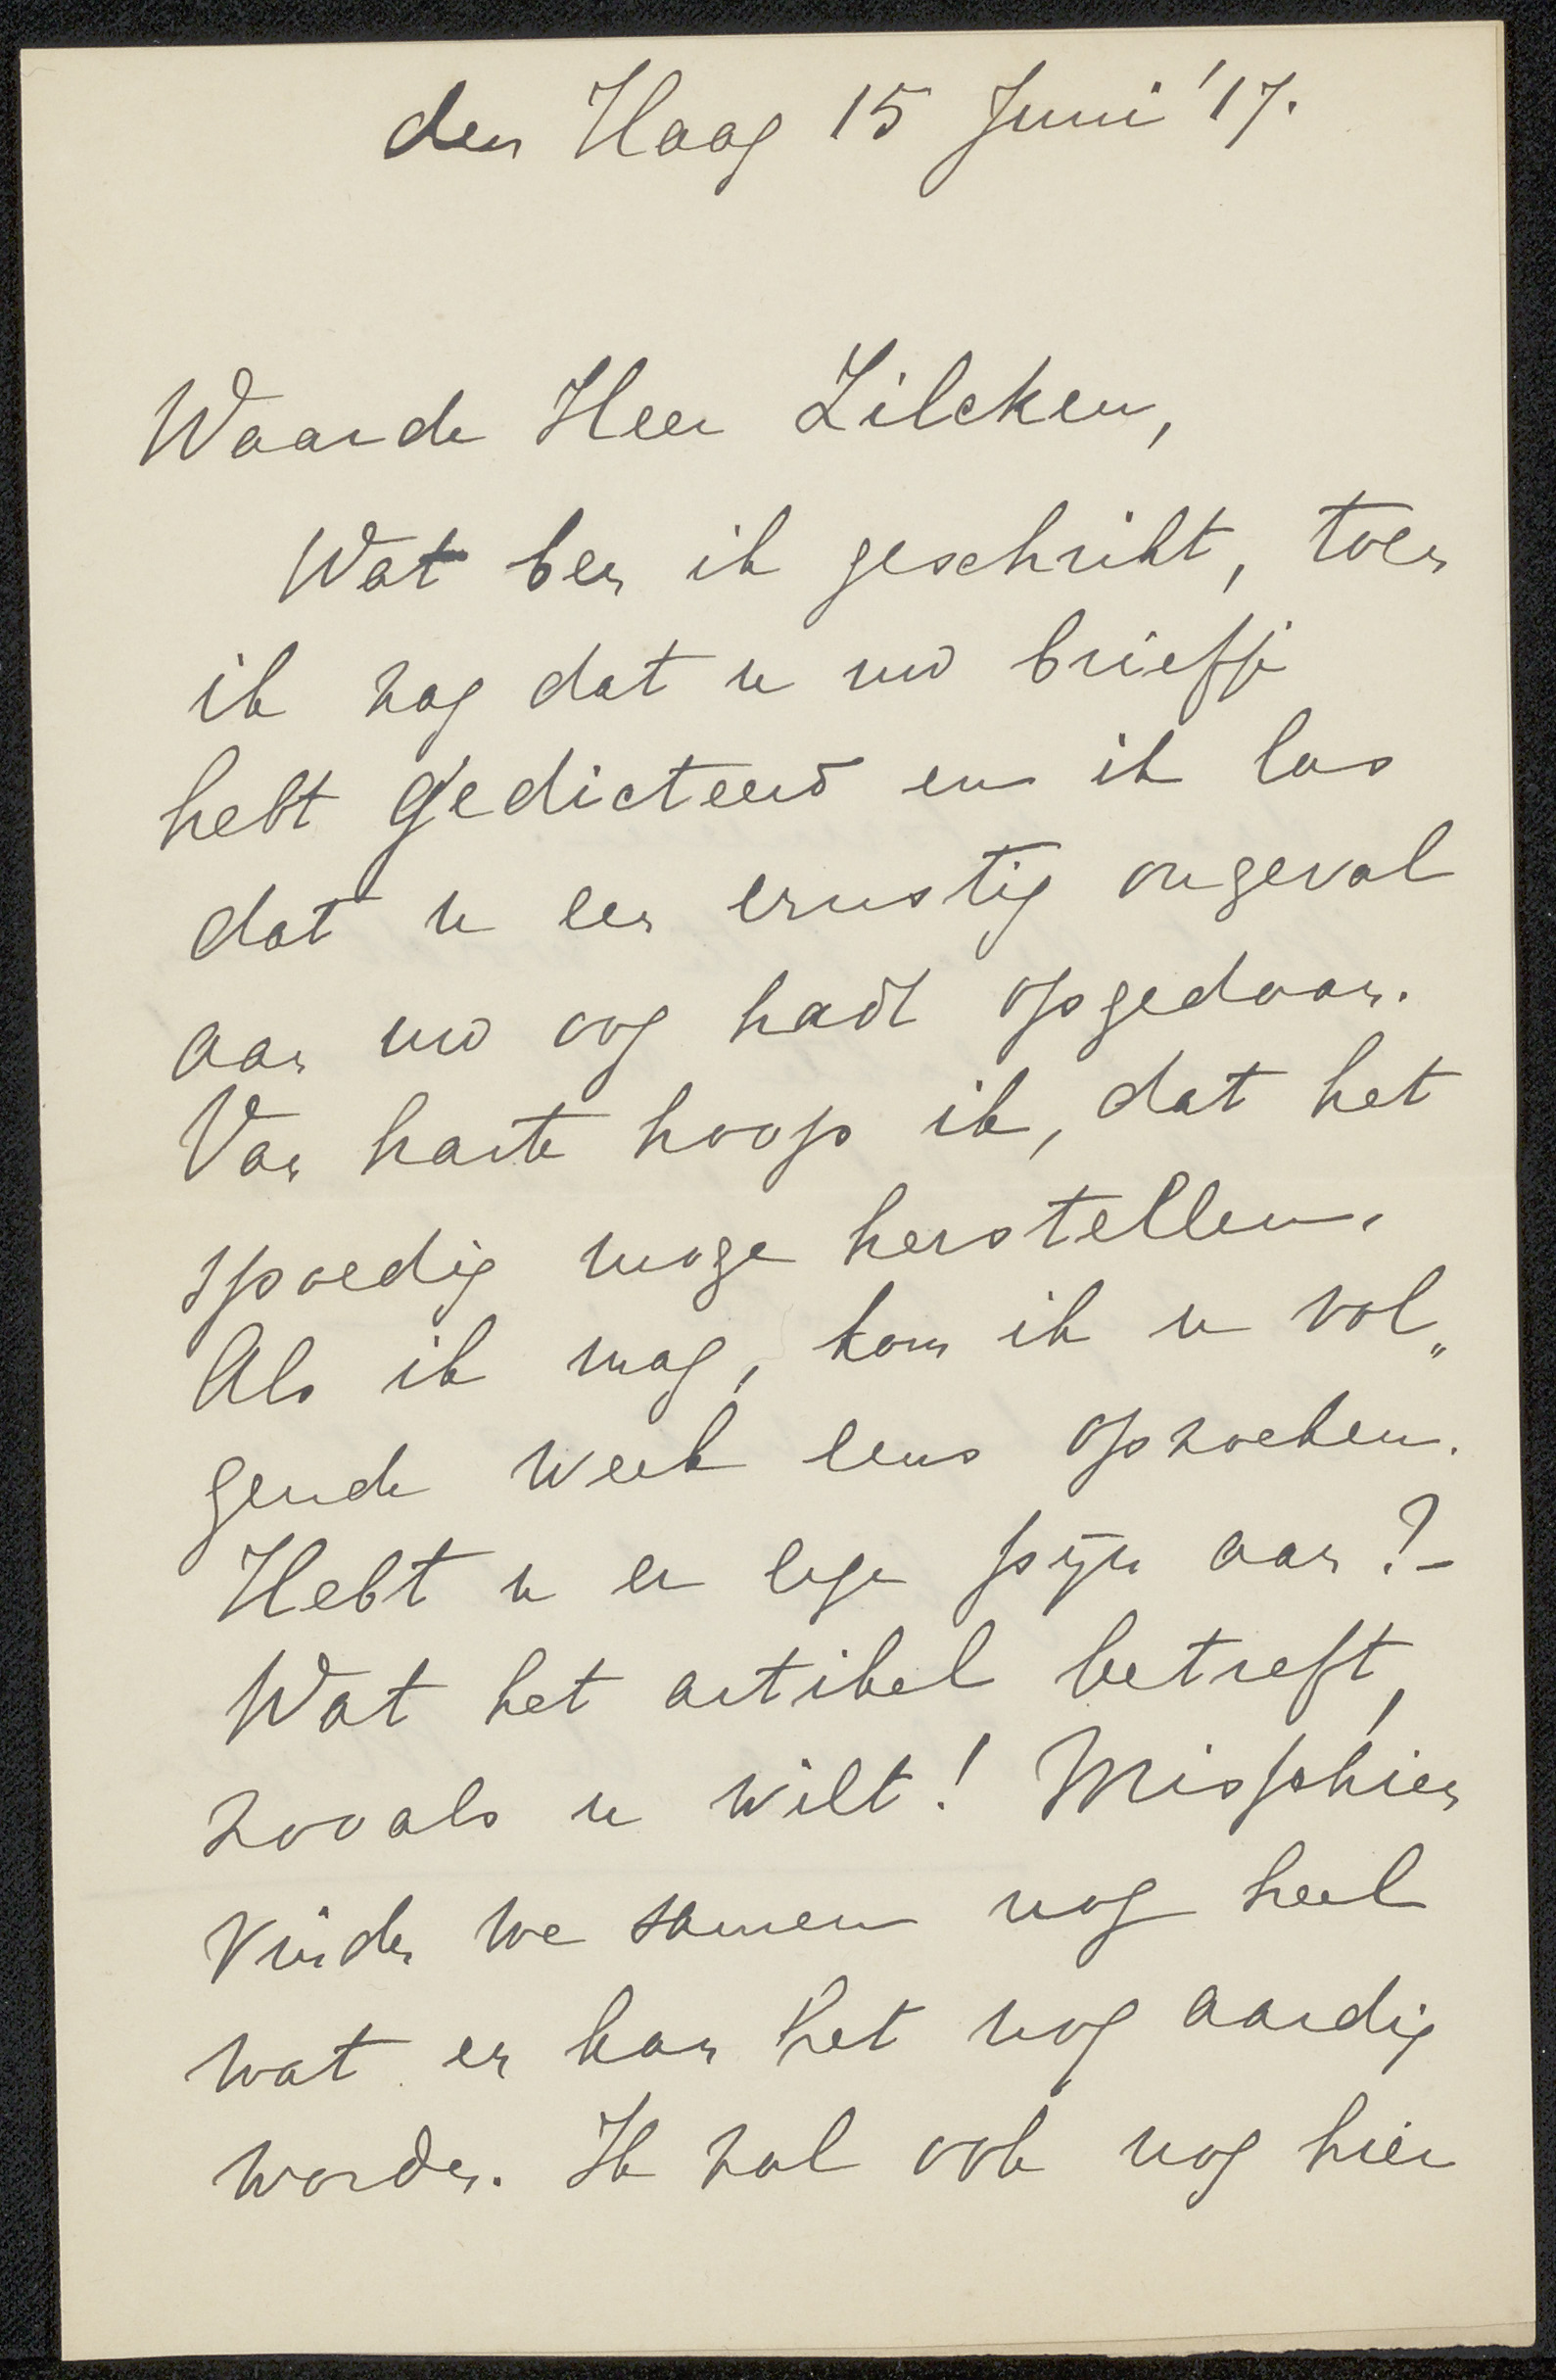 den Haag 15 Juni '17.
Waarde Heer Zilcken,
Wat ben ik geschrikt, toen
ik zag dat u uw briefje
hebt gedicteerd en ik las
dat u een ernstig ongeval
aan uw oog hadt opgedaan.
Van harte hoop ik, dat het
spoedig moge herstellen.
Als ik mag, kom ik u vol„
gende week eens opzoeken.
Hebt u er erge pijn aan?-
Wat het artikel betreft,
zooals u wilt! Misschien
vinden we samen nog heel
wat en kan het nog aardig
worden. Ik zal ook nog hier